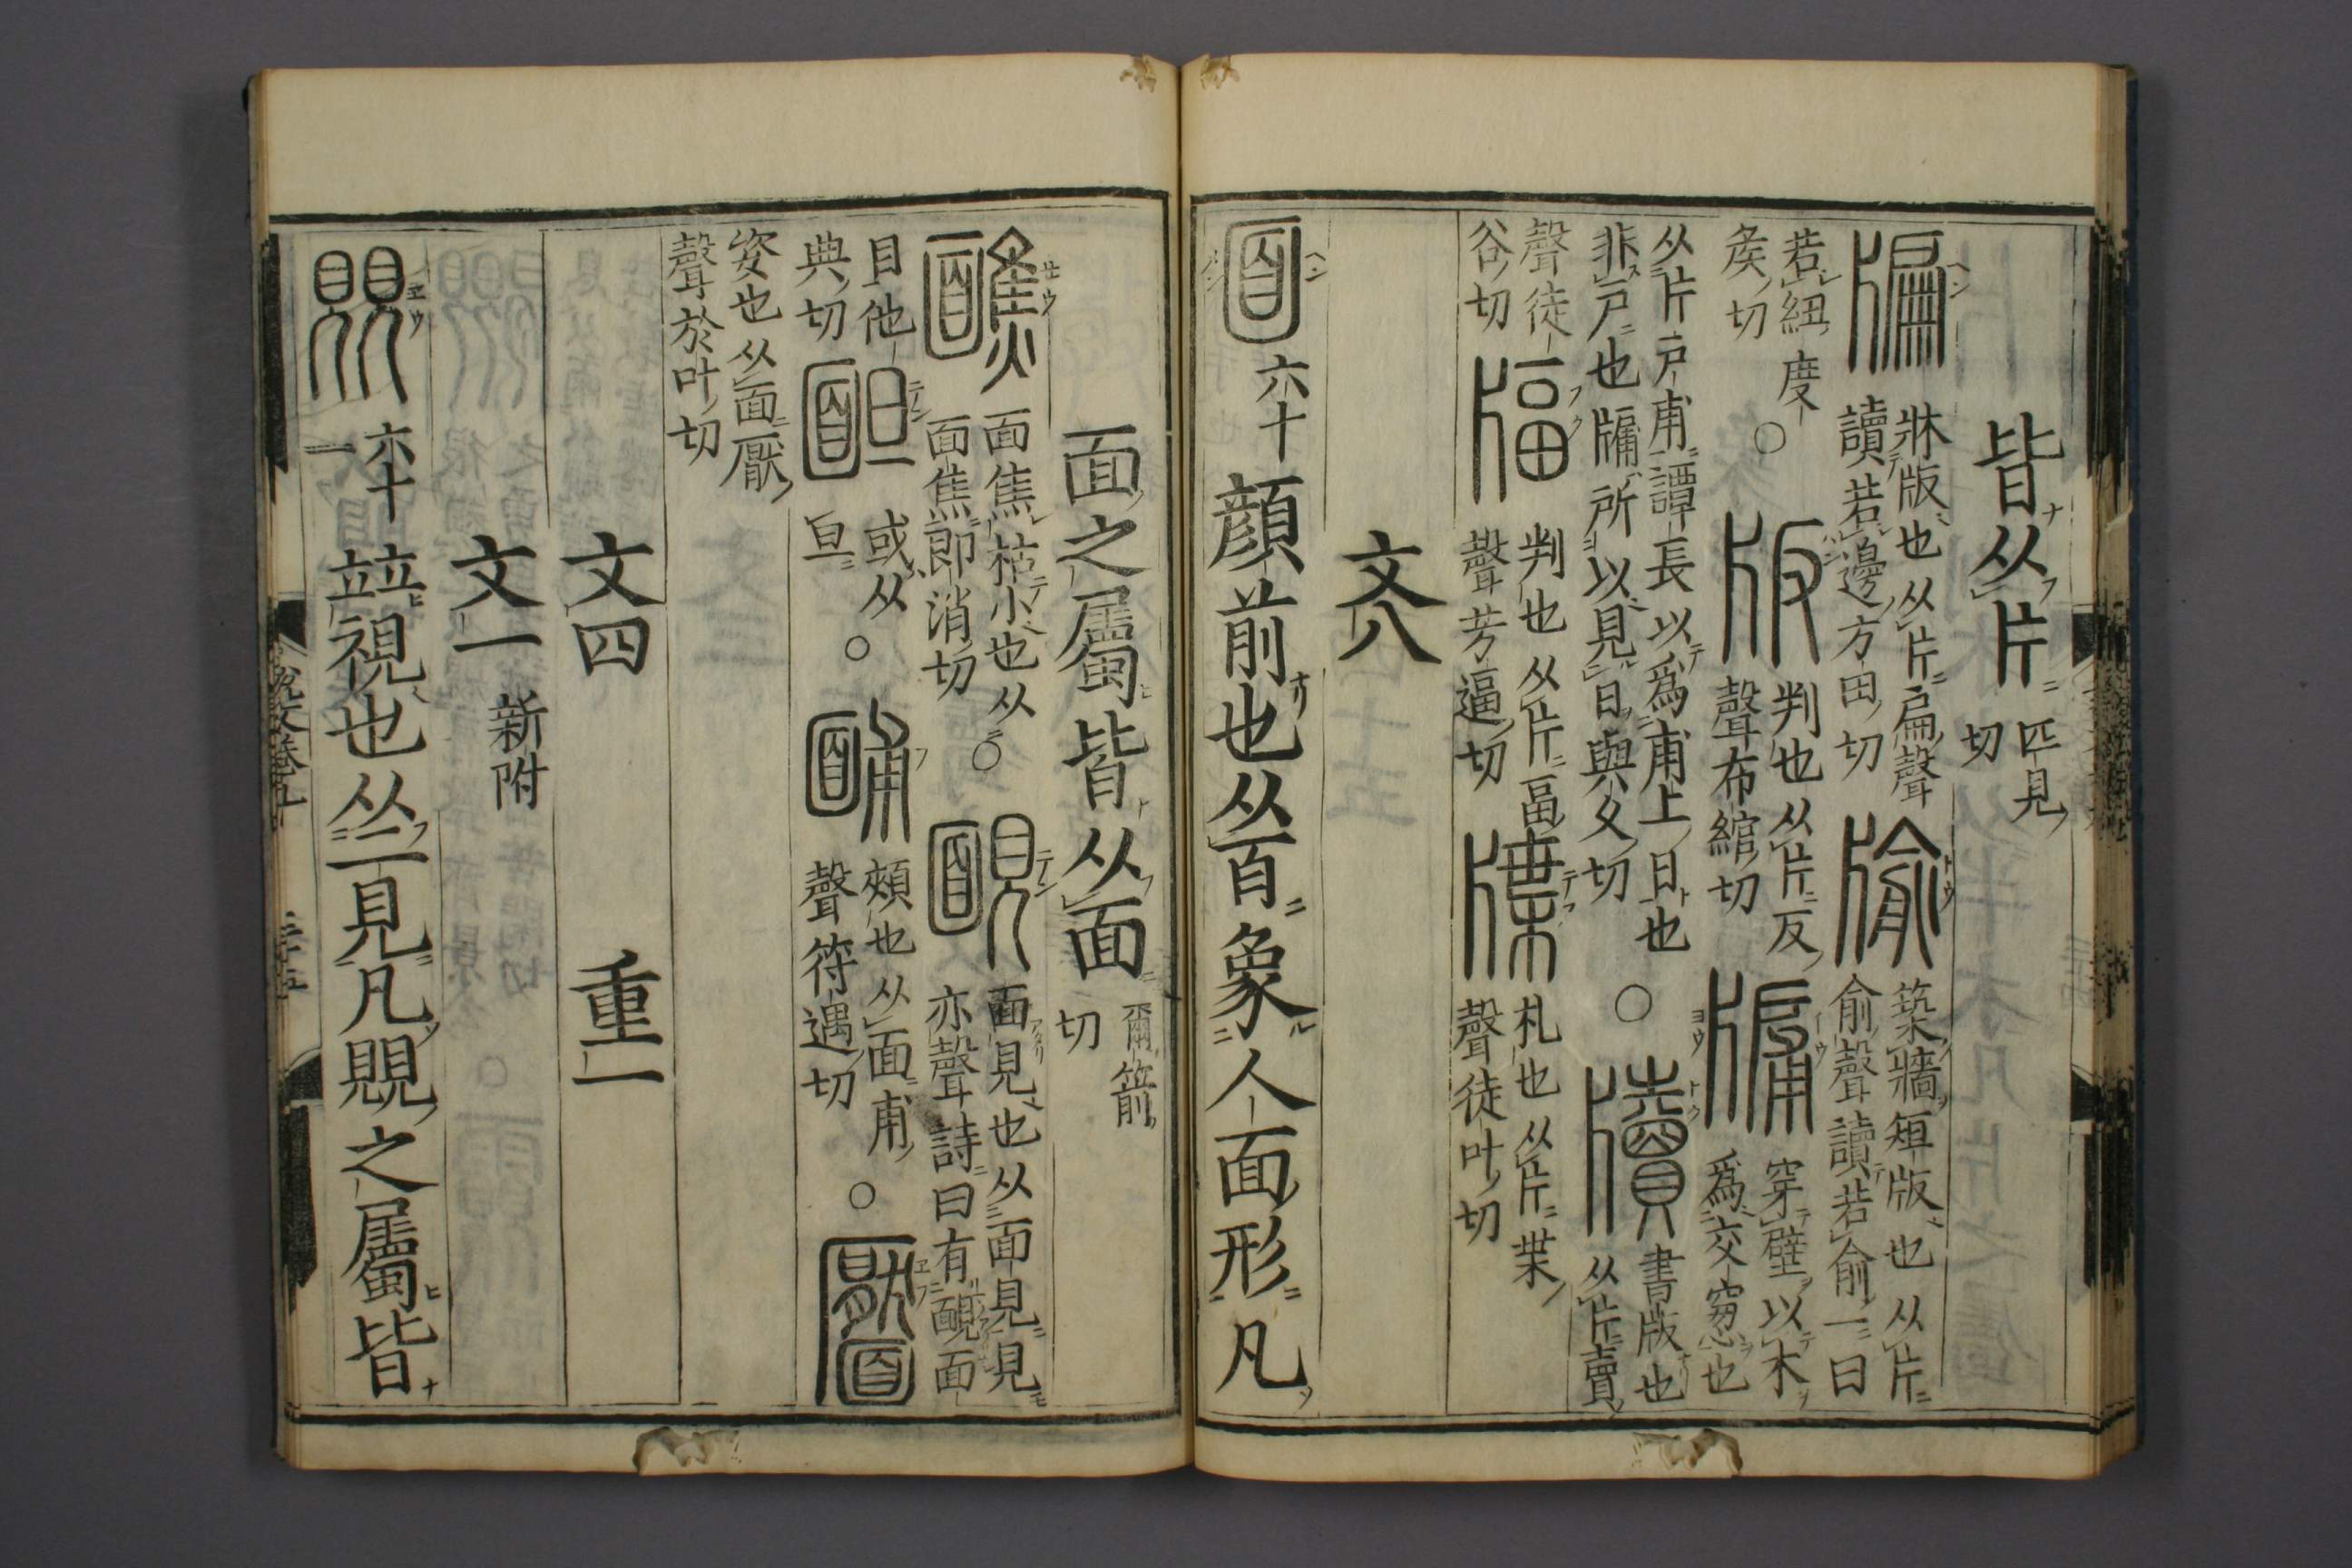 皆从片 匹見切
牑 牀版也从片扁聲
讀若邊方田切 牏 築牆短版也从片
俞聲讀若俞一曰
若紐度
矦切 〇 版 判也从片反
聲布綰切 牖 穿壁以木
爲交窻也
从片戸甫譚長以爲甫上日也
非戸也牖所以見日與久切 〇 牘 書版也
从片賣
聲徒
谷切 牔 判也从片畐
聲芳逼切 牒 札也从片枼
聲徒叶切
文八
面 六十 顔前也从𦣻象人面形凡
面之屬皆从面 彌箭切
醮 面焦枯小也从
面焦即消切 〇 靦 面見也从面見見
亦聲詩曰有靦面
目他
典切 䩈 或从
旦 〇 酺 頰也从面甫
聲符遇切 〇 靨
姿也从面厭
聲於叶切
文四 重一
文一 新附
覞 六十一 竝視也从二見凡覞之屬皆
説文卷五